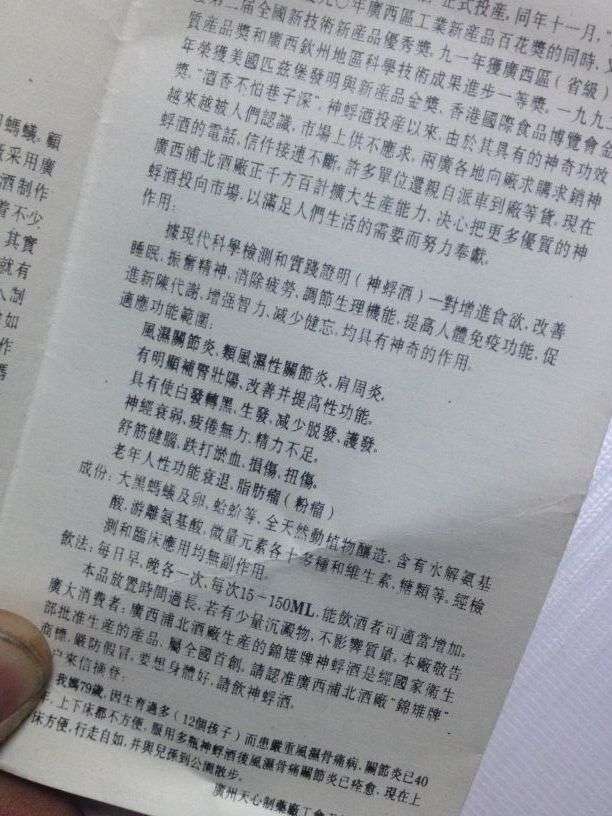 九〇年廣西區工業新產品百花獎的同時,
第二屆全國新技術新產品優秀獎,九一年獲廣西區(省級)
質產品獎和廣西欽州地區科學技術成果進步一等獎,一九九
年榮獲美國匹兹堡發明與新産品金獎、香港國際食品博覽會金
獎,"酒香不怕巷子深",神蜉酒投産以來,由於其具有的神奇功效
越來越被人們認識,市場上供不應求,兩廣各地向廠求購求銷神
蜉酒的電話,信件接連不斷,許多單位還親自派車到廠等貨,現在
廣西浦北酒廠正千方百計擴大生産能力,決心把更多優質的神
蜉酒投向市場,以滿足人們生活的需要而努力奉獻。
作用:
據現代科學檢測和實踐證明(神蜉酒)一對增進食欲,改善
睡眠,振奮精神,消除疲勞,調節生理機能,提高人體免疫功能,促
進新陳代謝,增强智力,减少健忘,均具有神奇的作用。
適應功能範圍:
風濕關節炎,類風濕性關節炎,肩周炎,
有明顯補腎壯陽、改善并提高性功能。
具有使白發轉黑,生發,减少脱發,護發。
神經衰弱,疲倦無力,精力不足。
舒筋健腦,跌打瘀血,損傷,扭傷。
老年人性功能衰退,脂肪瘤(粉瘤)
成份:大黑螞蟻及卵、蛤蚧等,全天然動植物釀造,含有水解氨基
酸,游離氨基酸,微量元素各十多種和維生素,糖類等。經檢
測和臨床應用均無副作用。
飲法:每日早,晚各一次,每次15-150ML,能飲酒者可適當增加。
本品放置時間過長,若有少量沉澱物,不影響質量。本廠敬告
廣大消費者:廣西浦北酒廠生産的錦堆牌神蜉酒是經國家衛生
部批准生産的産品、屬全國首創,請認准廣西浦北酒廠"錦堆牌"
商標,嚴防假冒,要想身體好,請飲神蜉酒。
户來信摘登:
我媽79歲,因生育過多(12個孩子)而患嚴重風濕骨痛病,關節炎已40
年,上下床都不方便,服用多瓶神蜉酒後風濕骨痛關節炎已痊愈,現在上
床方便,行走自如,并與兒孫到公園散步。
廣州天心制藥廠工會
螞蟻,顧
廠采用廣
酒制作
着不少
其實
就有
入制
如
作